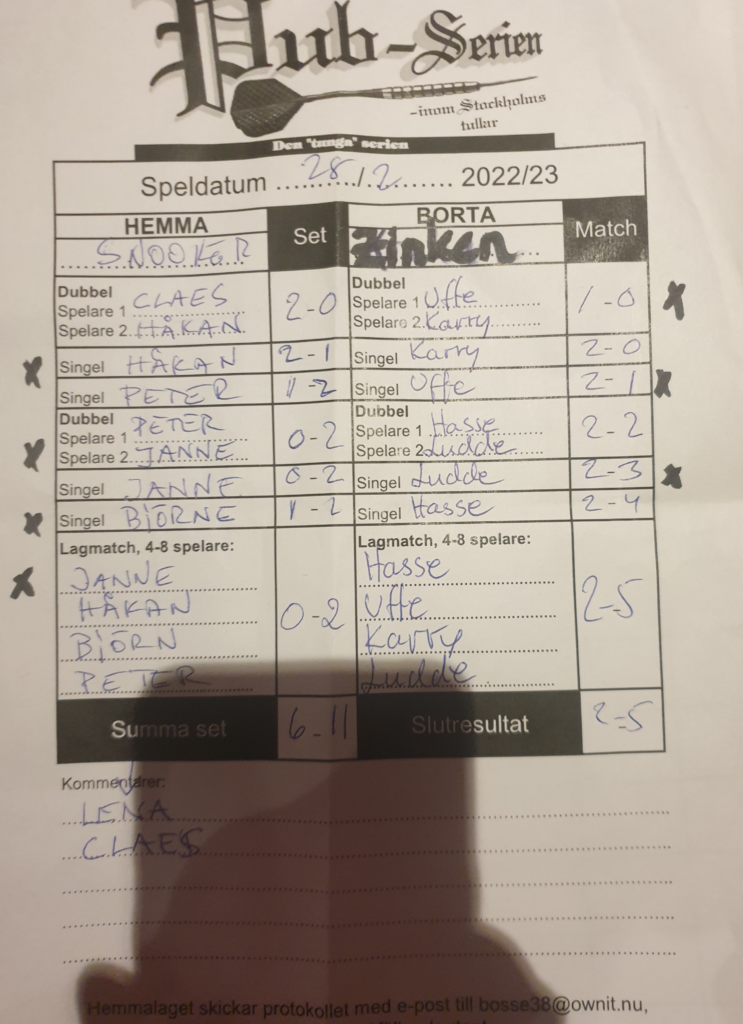 Pub-Serien
-inom Stockholms
tullar
Den "tunga" serien
Speldatum 28/2 2022/23
HEMMA Set BORTA Match
SNOOKER Zinken
Dubbel Dubbel
Spelare 1 CLAES 2-0 Spelare 1 Uffe 1-0 X
Spelare 2 HÅKAN Spelare 2 Karry
X Singel HÅKAN 2-1 Singel Karry 2-0
Singel PETER 1-2 Singel Uffe 2-1 X
Dubbel Dubbel
Spelare 1 PETER 0-2 Spelare 1 Hasse 2-2
X Spelare 2 JANNE Spelare 2 Ludde
Singel JANNE 0-2 Singel Ludde 2-3 X
X Singel BJÖRNE 1-2 Singel Hasse 2-4
Lagmatch, 4-8 spelare: Lagmatch, 4-8 spelare:
X JANNE Hasse
HÅKAN 0-2 Uffe 2-5
BJÖRN Karry
PETER Ludde
Summa set 6-11 Slutresultat 2-5
Kommentarer:
LENA
CLAES
Hemmalaget skickar protokollet med e-post till bosse38@ownit.nu,